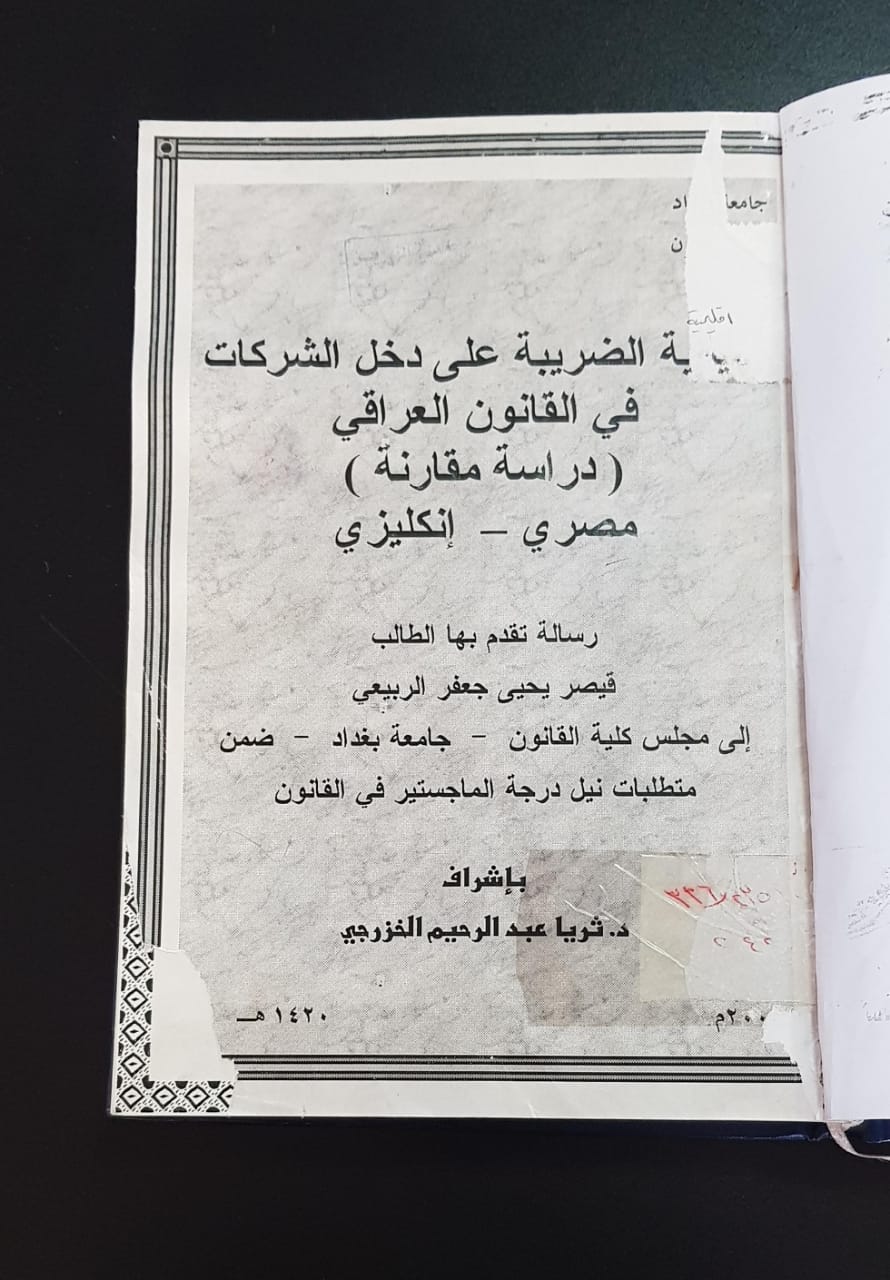 جامعة
اقليمية
الضريبة على دخل الشركات
في القانون العراقي
( دراسة مقارنة )
مصري – إنكليزي
رسالة تقدم بها الطالب
قيصر يحيى جعفر الربيعي
إلى مجلس كلية القانون – جامعة بغداد – ضمن
متطلبات نيل درجة الماجستير في القانون
بإشراف
د. ثريا عبد الرحيم الخزرجي
١٤٢٠ هـ